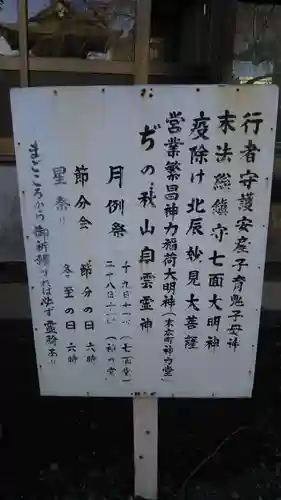 行者守護安産子育鬼子母神
末法総鎮守七面大明神
疫除け北辰妙見大菩薩
営業繁昌神力稲荷大明神（末広町神力堂）
ぢの秋山自雲霊神
月例祭 十九日十一時（七面堂）
二十八日十一時（神力堂）
節分会 節分の日 六時
星祭り 冬至の日 六時
まごころから御祈願すれば必ず霊験あり